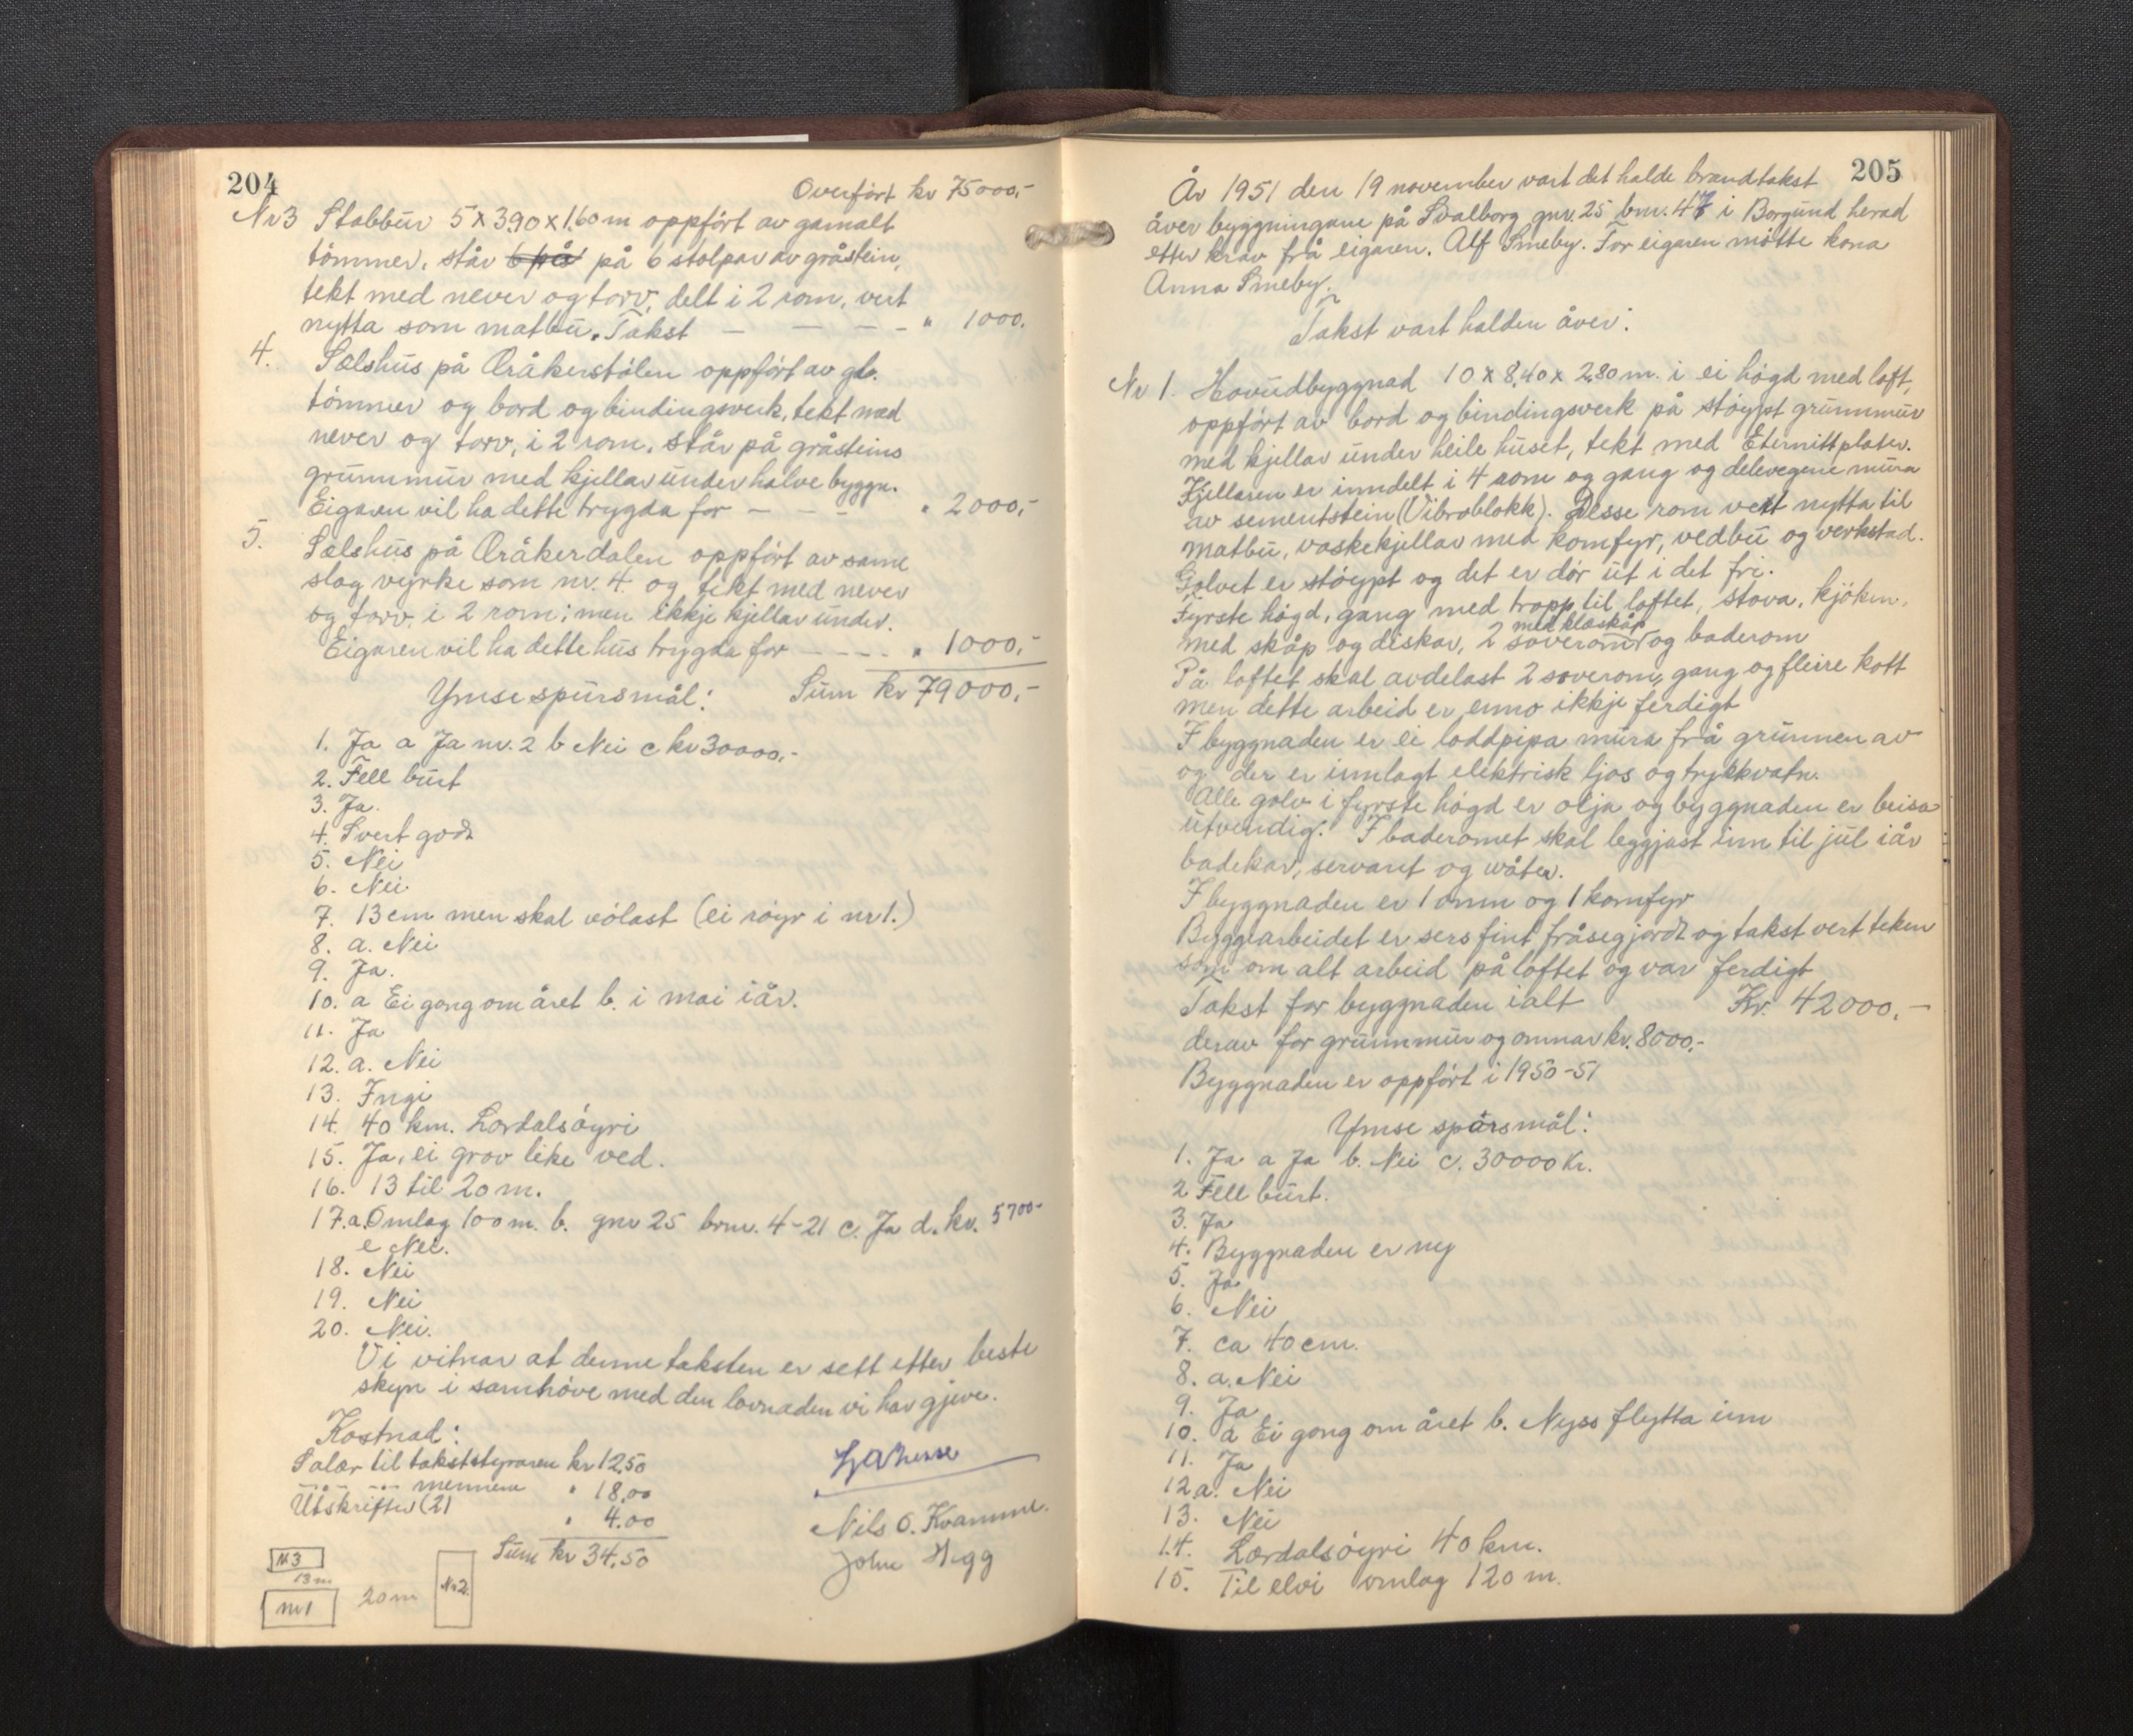 204
Overført kr 75000,-
Nr 3 Stabbur 5 x 3,90 x 1,60 m oppført av gamalt
tømmer, står 6 på på 6 stolpar av gråstein,
tekt med never og torv, delt i 2 rom, vert
nytta som matbu. Takst — — — - " 1000.
4. Sælshus på Øråkerstølen oppført av gl.
tømmer og bord og bindingsverk, tekt med
never og torv, i 2 rom, står på gråsteins
grunnmur med kjellar under halve byggn.
Eigaren vil ha dette trygda for — — — " 2000,-
5. Sælshus på Øråkerdalen oppført av same
slag vyrke som nr. 4 og tekt med never
og torv, i 2 rom; men ikkje kjellar under.
Eigaren vil ha dette hus trygda for — - - - " 1000,-
Ymse spursmål: Sum kr 79000,-
1. Ja a Ja nr. 2 b Nei c kr 30000,-
2. Fell burt
3. Ja.
4. Svert godt
5. Nei
6. Nei.
7. 13 cm men skal vølast (ei røyr i nr 1.)
8. a. Nei
9. Ja.
10. a Ei gong om året b. i mai iår.
11. Ja
12. a. Nei
13. Ingi
14. 40 km. Lærdalsøyri
15. Ja, ei grov like ved.
16. 13 til 20 m.
17. a. Omlag 100 m. b. gnr 25 brnr. 4-21 c. Ja d. kr. 5700-
e Nei.
18. Nei
19. Nei
20. Nei.
Vi vitnar at denne taksten er sett etter beste
skyn i samhøve med den lovnaden vi har gjeve.
Kostnad:
Salær til takststyraren kr 12,50
" " mennene " 18,00
Utskrifter (2) " 4.00
Sum kr 34,50
Nils O. Kvamme.
John Hegg
Nr 3
13 m
nr 1
20 m
Nr 2.
205
År 1951 den 19 november vart det halde brandtakst
åver byggningane på Svalborg gnr. 25 bnr. 47 i Borgund herad
etter krav frå eigaren. Alf Smeby. For eigaren møtte kona
Anna Smeby.
Takst vart halden åver:
Nr 1. Hovudbyggnad 10 x 8,40 x 2,80 m. i ei høgd med loft,
oppført av bord og bindingsverk på støypt grunnmur
med kjellar under heile huset, tekt med Eternittplater.
Kjellaren er inndelt i 4 rom og gang og delevegene mura
av sementstein (Vibroblokk). Desse rom vert nytta til
matbu, vaskekjellar med komfyr, vedbu og verkstad.
Golvet er støypt og det er dør ut i det fri.
Fyrste høgd, gang med tropp til loftet, stova, kjøken,
med klæskåp
med skåp og diskar, 2 soverom og baderom
På loftet skal avdelast 2 soverom, gang og fleire kott
men dette arbeid er enno ikkje ferdigt
I byggnaden er ei loddpipa mura frå grunnen av
og der er innlagt elektrisk ljos og trykkvatn.
Alle golv i fyrste høgd er olja og byggnaden er beisa
utvendig. I baderomet skal leggjast inn til jul iår
badekar, servant og wåter.
I byggnaden er 1 omn og 1 komfyr
Byggearbeidet er sers fint fråsegjordt og takst vert teken
som om alt arbeid på loftet og var ferdigt
Takst for byggnaden ialt Kr. 42000,-
derav for grunnmur og omnar kr. 8000,-
Byggnaden er oppført i 1950-51
Ymse spørsmål:
1. Ja a Ja b. Nei c. 30000 Kr.
2 Fell burt.
3. Ja
4. Byggnaden er ny
5. Ja
6. Nei
7. ca 40 cm.
8. a. Nei
9. Ja
10. a Ei gong om året b. Nyss flytta inn
11. Ja
12 a. Nei
13. Nei
14. Lærdalsøyri 40 km.
15. Til elvi omlag 120 m.